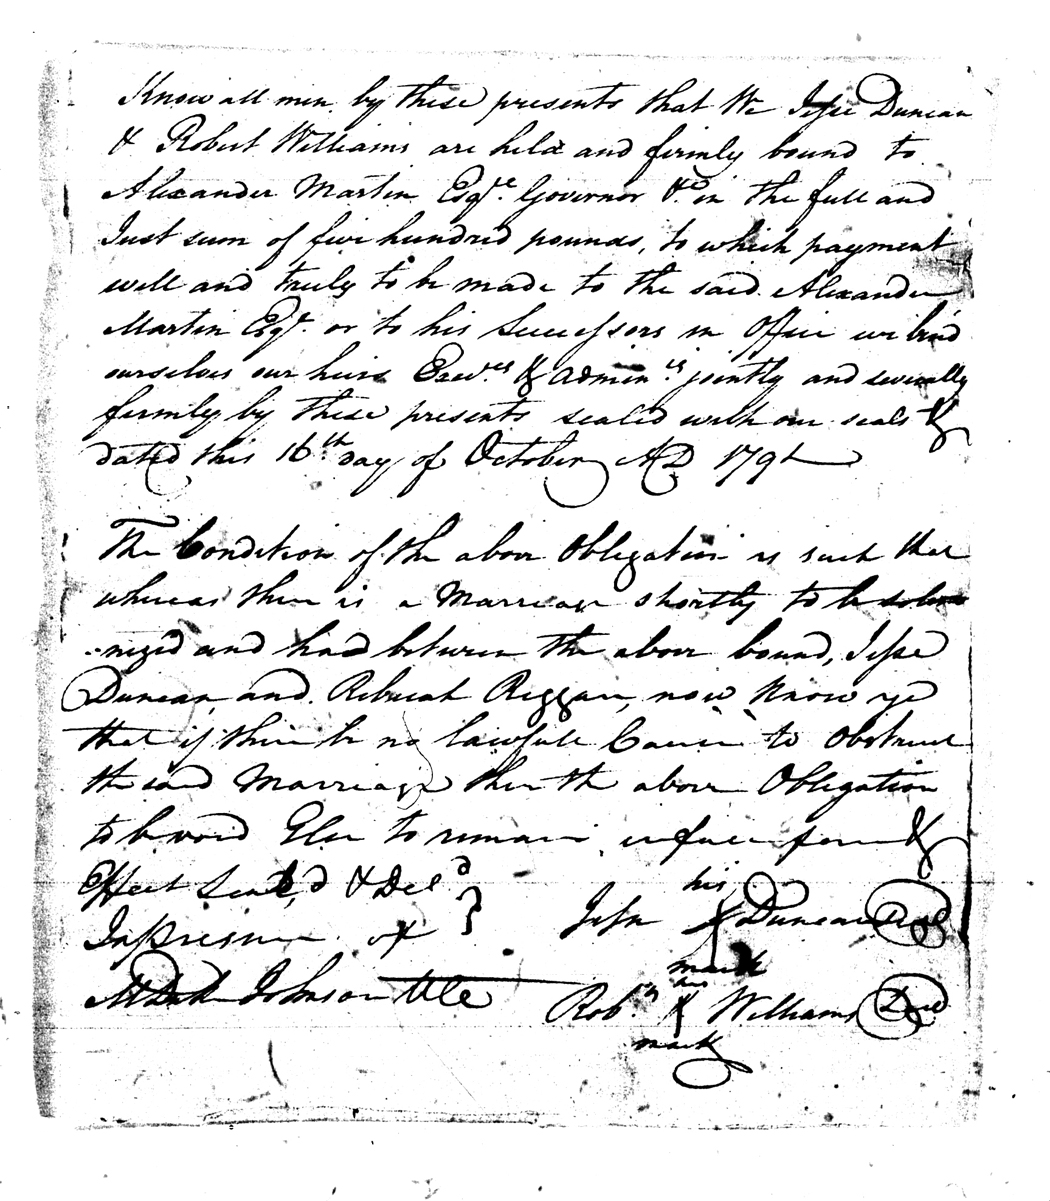 Know all men by these presents that We Jesse Duncan
& Robert Williams are held and firmly bound to
Alexander Martin Esqre. Governor &c. in the full and
Just sum of five hundred pounds, to which payment
well and truly to be made to the said Alexander
Martin Esqr. or to his Successors in Office we bind
ourselves our heirs Exers. & Adminrs. jointly and severally
firmly by these presents sealed with our seals &
dated this 16th. day of October AD 1791
The Condition of the above Obligation is such that
whereas there is a Marriage shortly to be solem
-nized and had between the above bound, Jesse
Duncan, and Rebecah Riggan, now Know ye
that if there be no lawfull Cause to Obstruct
the said Marriage then the above Obligation
to be void Else to remain in full force &
Effect Seal,d & Deld
In Presence of
his
Jesse Duncan Seal
mark
Johnson
his
Robt. Williams Seal
mark